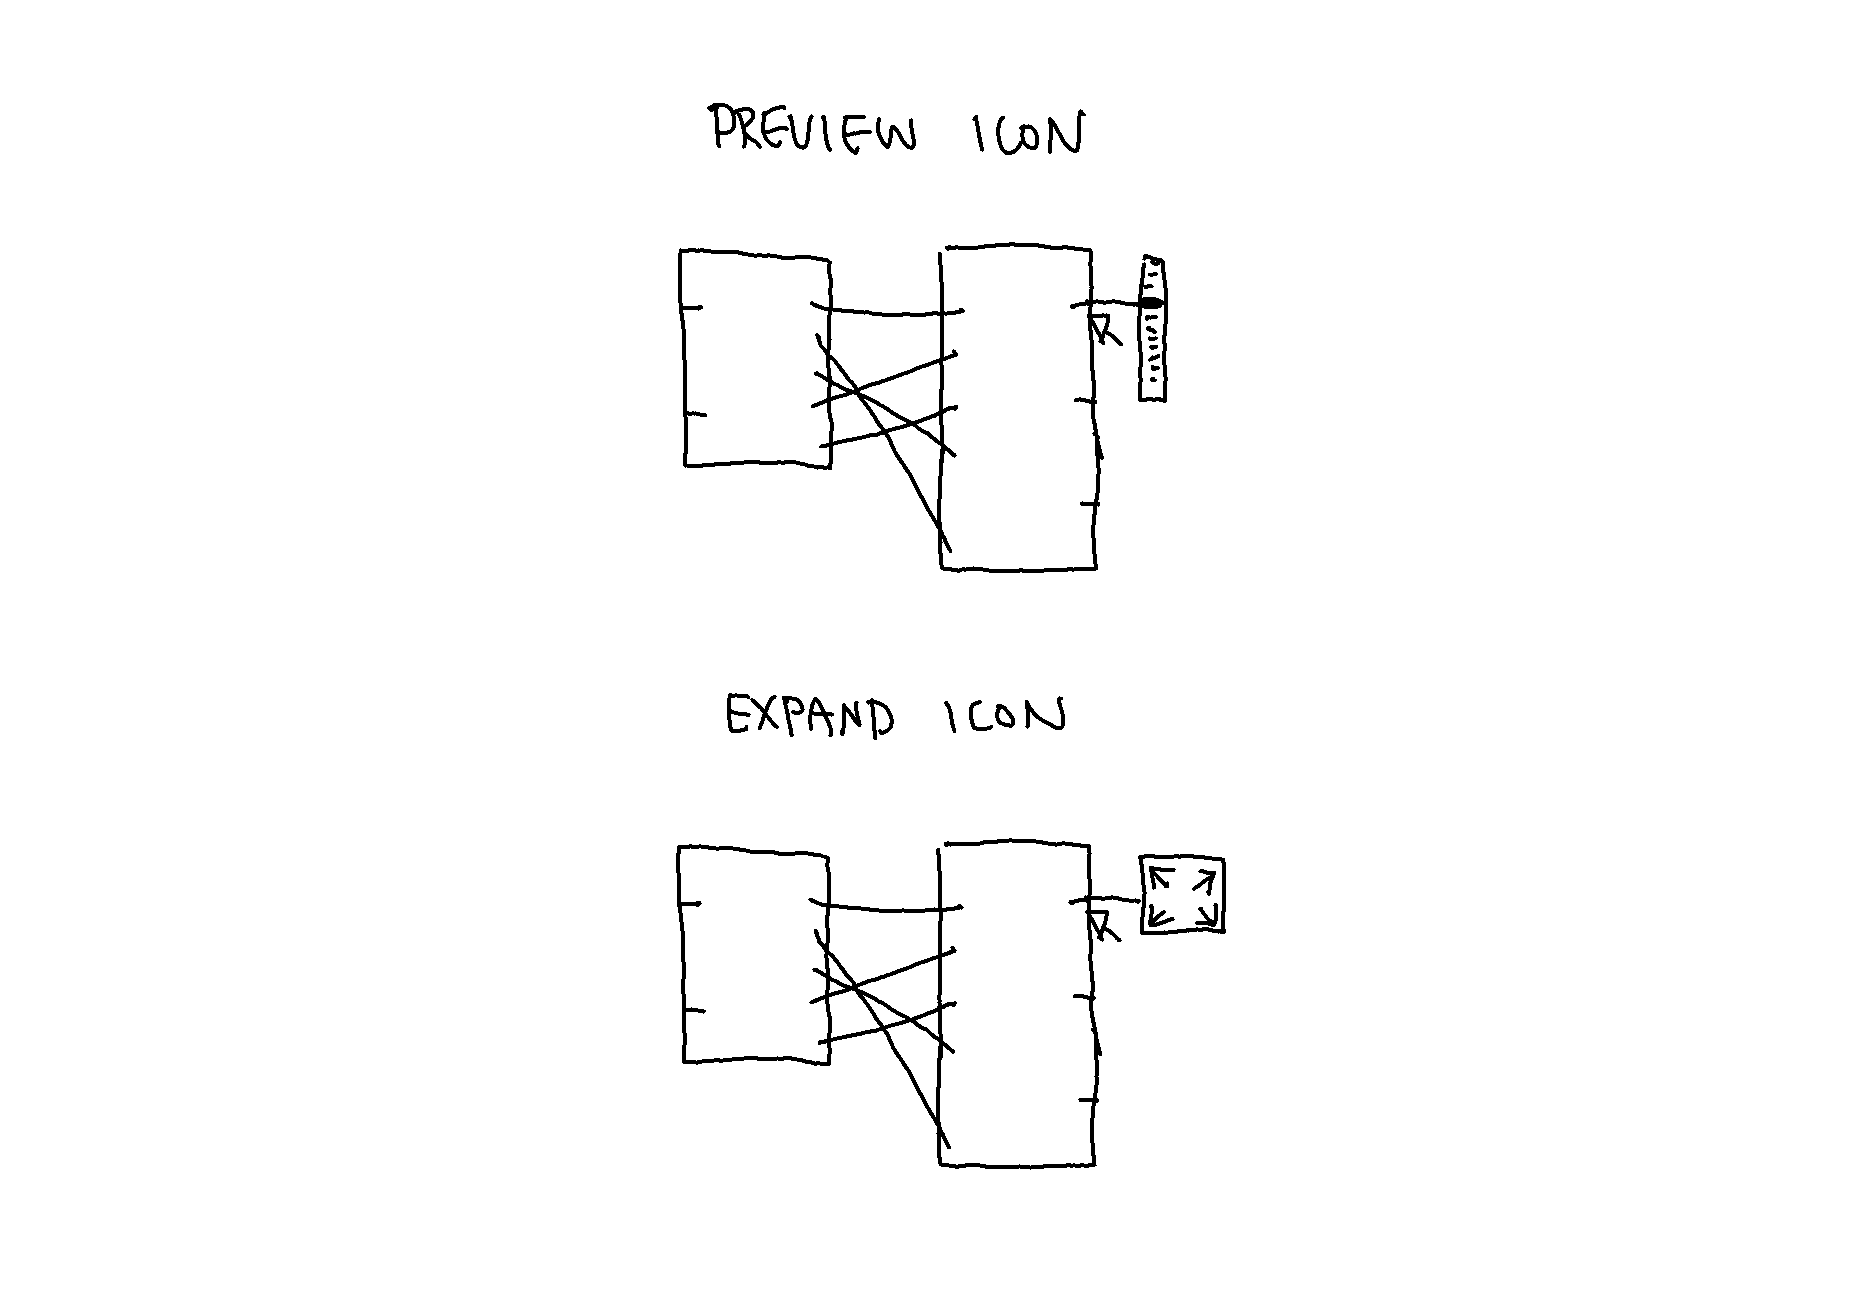 PREVIEW ICON
EXPAND ICON